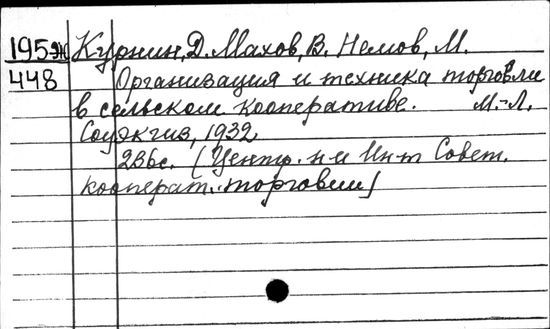 195ж Курнин, Д. Махов, В. Немов, М.
448 Организация и техника торговли
в сельском кооперативе. М.-Л.
Соцэкгиз, 1932
236с. (Центр. н-и Ин-т Совет.
кооперат. торговли)